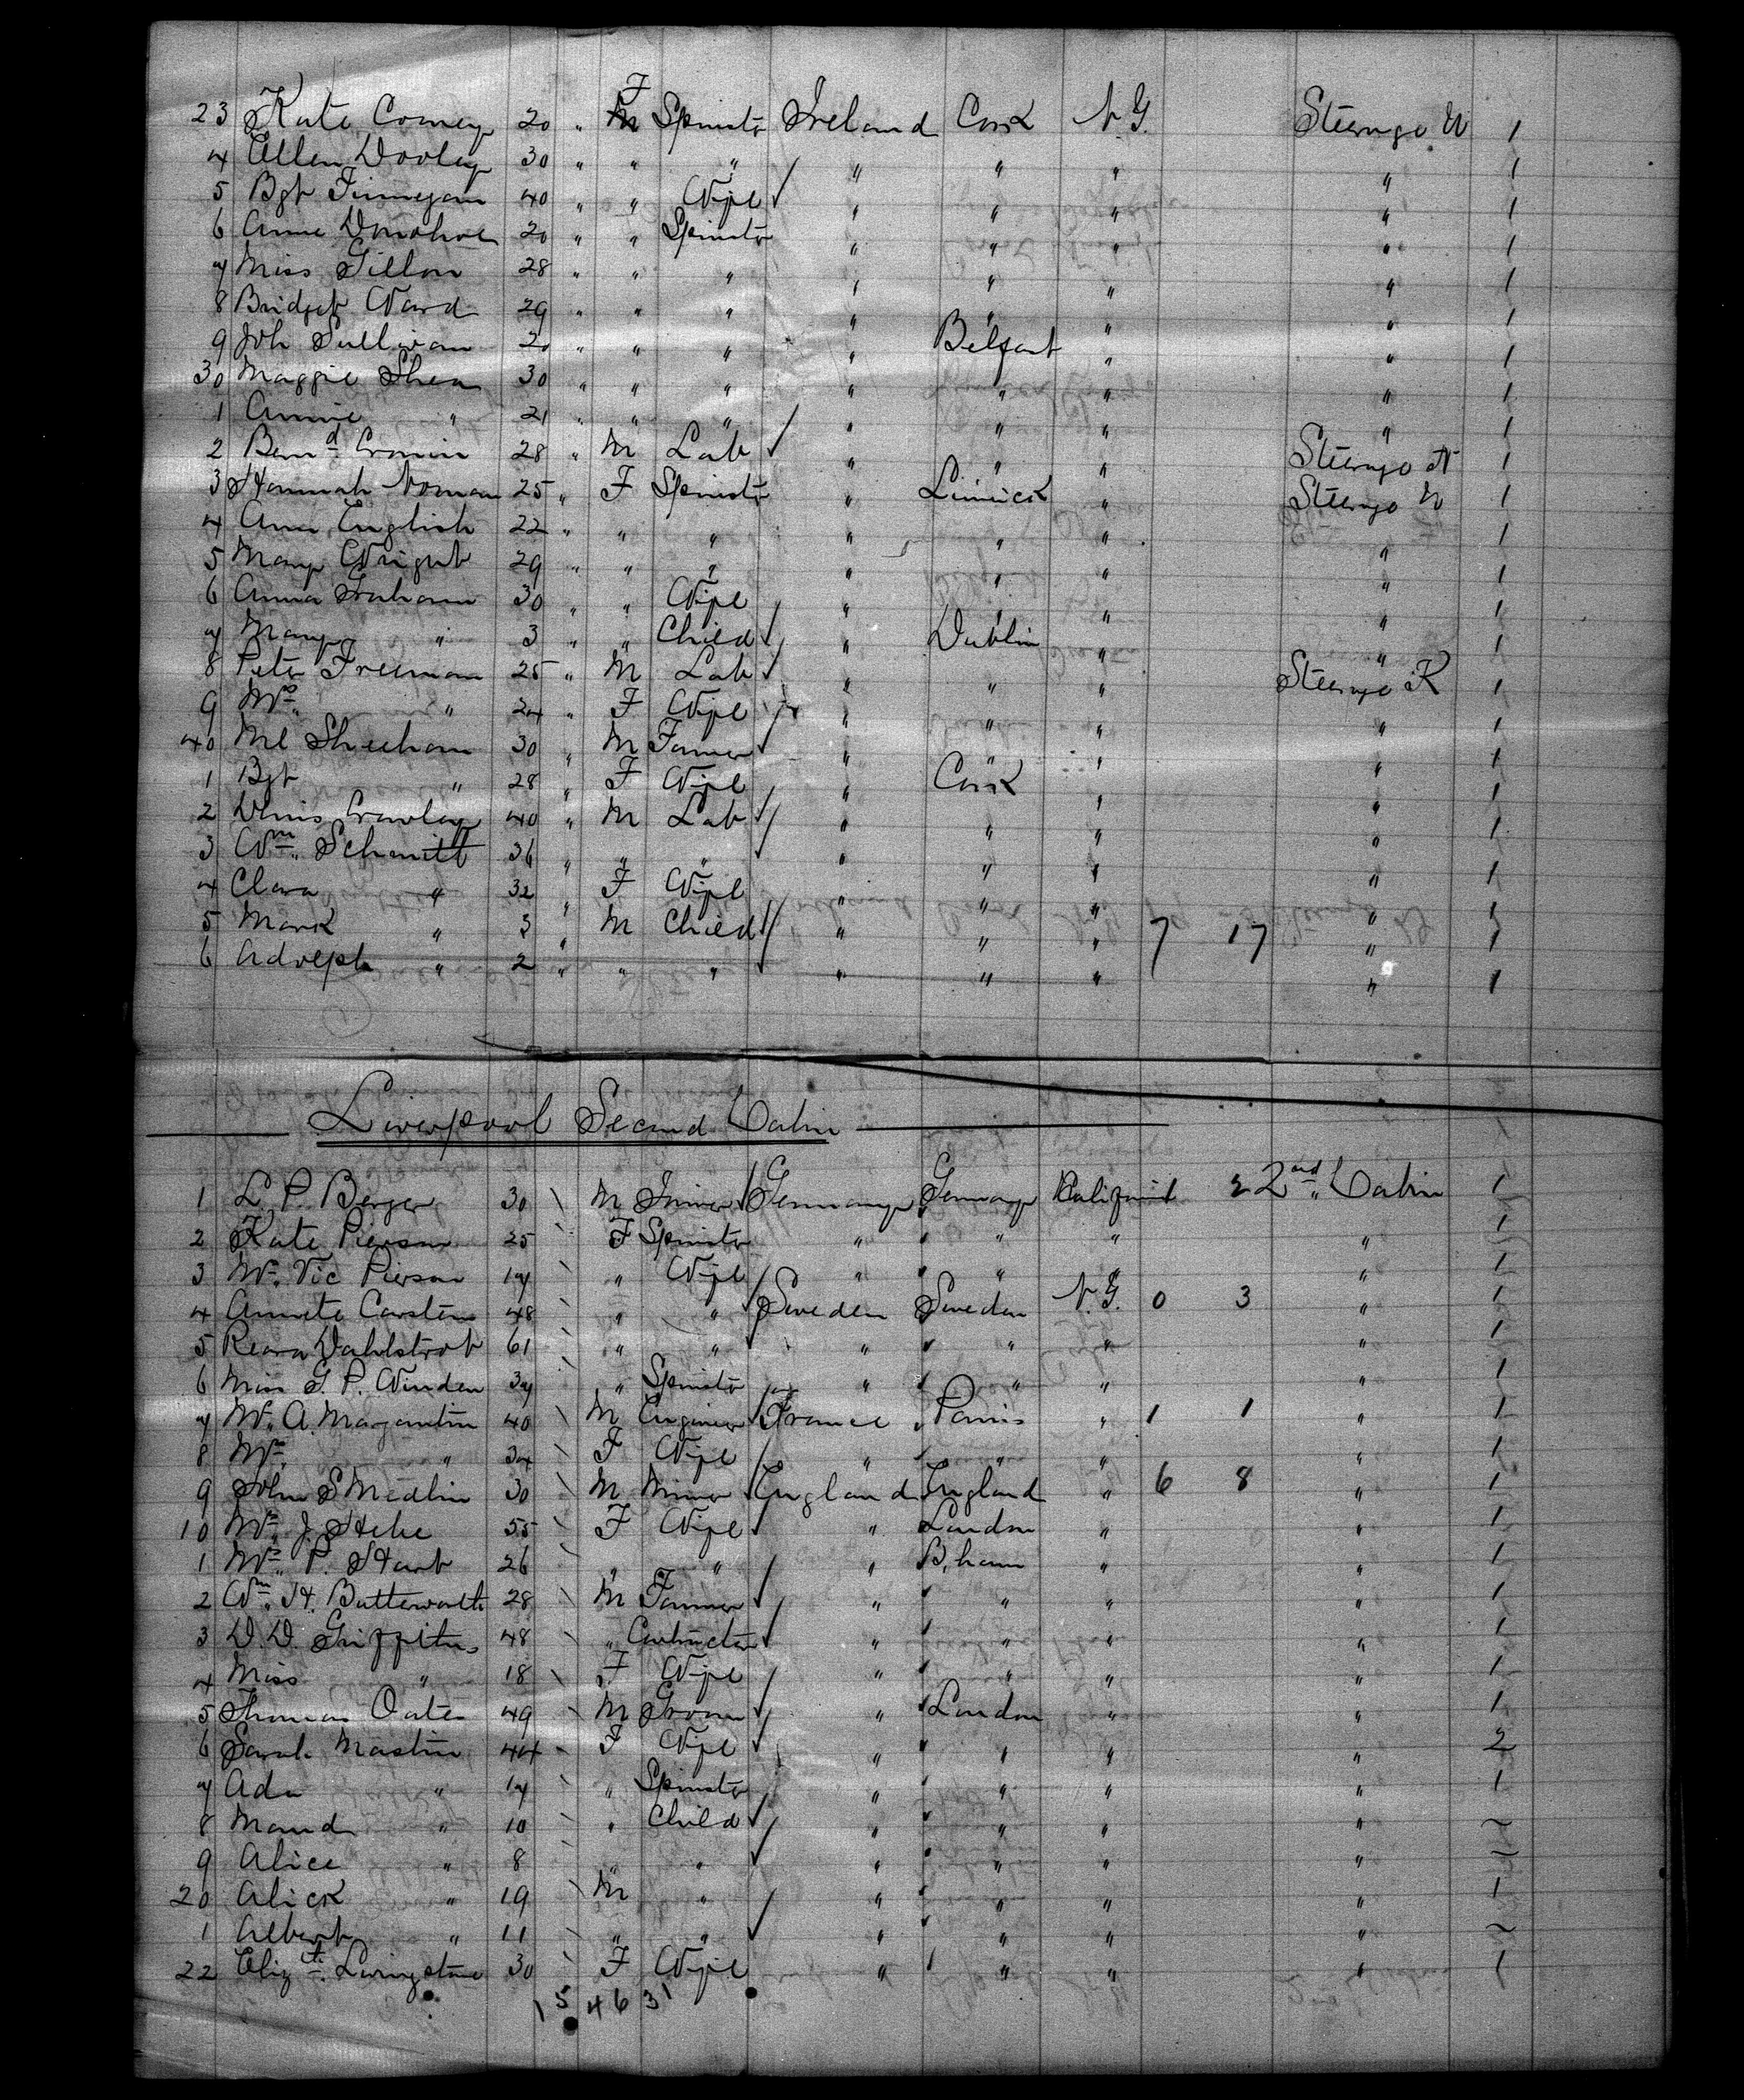 23 Kate Comey 20 " F Spinster Ireland Cork N.Y. Steerage W 1
4 Ellen Dooley 30 " " " " " " " 1
5 Bgt Finnegan 40 " " Wife " " " " 1
6 Anne Donohoe 20 " " Spinster " " " " 1
7 Miss Gillon 28 " " " " " " " 1
8 Bridget Ward 29 " " " " " " " 1
9 Joh Sullivan 20 " " " " Belfast " " 1
30 Maggie Shea 30 " " " " " " " 1
1 Annie " 21 " " " " " " " 1
2 Bernd Cronin 28 " M Lab " " " Steerage 1
3 Hannah Noman 25 " F Spinster " Limrick " Steerage W 1
4 Ann English 22 " " " " " " " 1
5 Mary Wright 29 " " " " " " " 1
6 Anna Graham 30 " " Wife " " " " 1
7 Mary " 3 " " Child " Dublin " " 1
8 Peter Freeman 25 " M Lab " " " Steerage K 1
9 Mrs " 24 " F Wife " " " " 1
40 Ml Sheehan 30 " M Farmer " " " " 1
1 Bgt " 28 " F Wife " Cork " " 1
2 Denis Crowley 40 " M Lab " " " " 1
3 Wm. Schmitt 36 " " " " " " " 1
4 Clara " 32 " F Wife " " " " 1
5 Mark " 3 " M Child " " " 7 17 " 1
6 Adolph " 2 " " " " " " " 1
Liverpool Second Cabin
1 L. P. Berger 30 M Germany Germany California 2 2nd Cabin 1
2 Kate Pierson 25 F Spinster " " " " 1
3 Mrs. Vic Pierson 17 " Wife " " " " 1
4 Annete Carsten 48 " " Sweden Sweden N.Y. 0 3 " 1
5 Dahlstrot 61 " " " " " " 1
6 Miss G. P. Winden 37 " Spinster " " " " 1
7 Mr. A. Margantin 40 M Engineer France Paris " 1 1 " 1
8 Mrs. " 34 F Wife " " " " 1
9 John S Medlin 30 M Miner England England " 6 8 " 1
10 Mrs. J. Hehe 55 F Wife " London " " 1
1 Mrs. P. Hart 26 " " " B.ham " " 1
2 Wm. H. Butterworth 28 M Farmer " " " " 1
3 D. D. Griffiths 48 " Contractor " " " " 1
4 Miss " 18 F Wife " " " " 1
5 Thomas Oates 49 M Groom " London " " 1
6 Sarah Mastin 44 F Wife " " " " 2
7 Ada " 17 " Spinster " " " " 1
8 Maud " 10 " Child " " " " ~
9 Alice " 8 " " " " " " ~
20 Alick " 19 M " " " " " 1
1 Albert " 11 " " " " " " ~
22 Elizth. Livingstone 30 F Wife " " " " 1
5 4 6 31